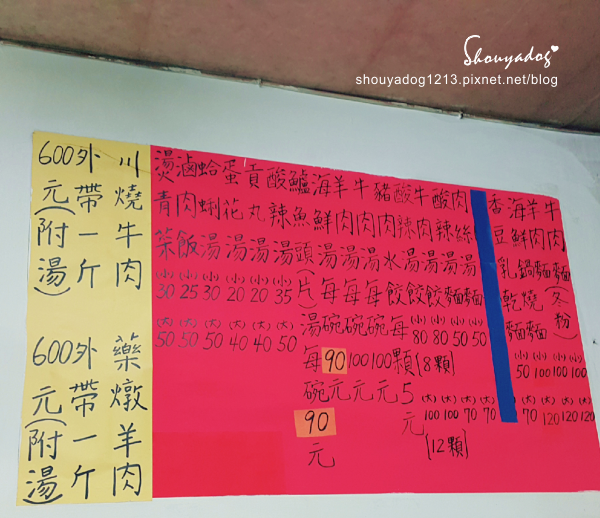 Shouyadog
shouyadog1213.pixnet.net/blog
牛肉麵(冬粉) (小)100 (大)120
羊肉麵 (小)100 (大)120
海鮮鍋燒麵 (小)100 (大)120
香豆乳乾麵 (小)50 (大)70
肉絲湯麵 (小)50 (大)70
酸辣湯麵 (小)50 (大)70
牛肉湯餃 (小)80 (大)100
酸辣湯餃 (小)80 (大)100
[8顆]
[12顆]
豬肉水餃每顆5元
牛肉湯每碗100元
羊肉湯每碗100元
海鮮湯每碗90元
鱸魚頭(片)湯每碗90元
酸辣湯 (小)35 (大)50
貢丸湯 (小)20 (大)40
蛋花湯 (小)20 (大)40
蛤蜊湯 (小)30 (大)50
滷肉飯 (小)25 (大)50
燙青菜 (小)30 (大)50
川燒牛肉
外帶一斤
600元(附湯)
藥燉羊肉
外帶一斤
600元(附湯)